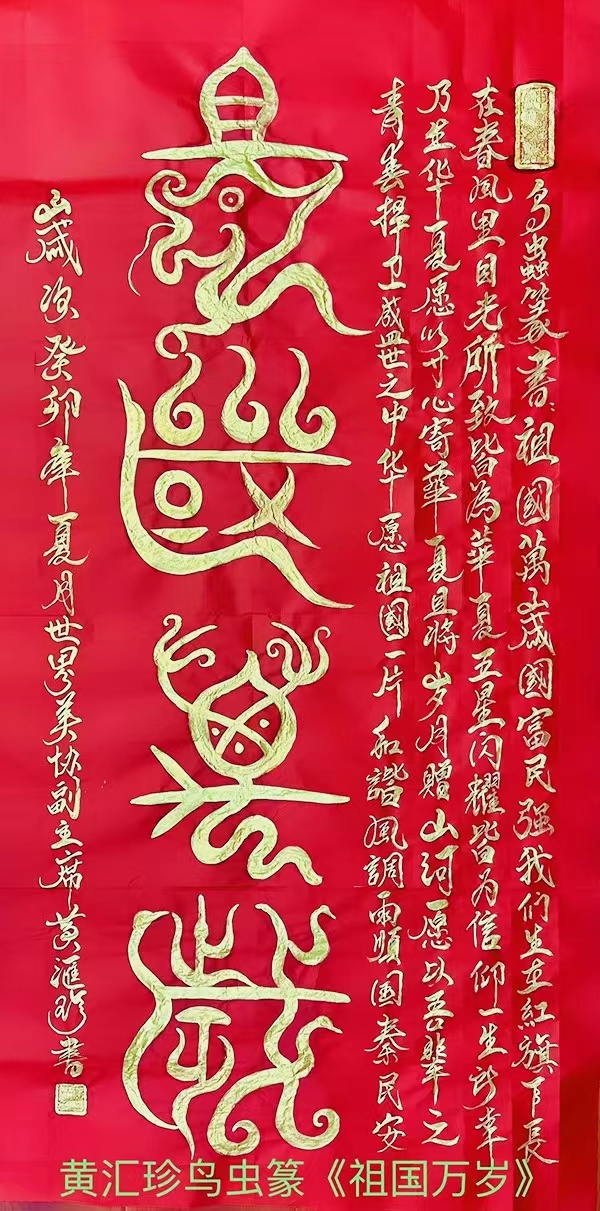 鸟蟲篆書:祖國萬歲國富民强我们生在紅旗下長
在春风里目光所致皆為華夏五星闪耀皆为信仰一生所幸
乃生华夏愿以寸心寄華夏且将岁月贈山河愿以吾辈之
青春捍卫盛世之中华愿祖國一片和諧風調雨順国泰民安
祖國萬歲
歲次癸卯年夏月世界美协副主席黄滙珍書
黄汇珍鸟虫篆《祖国万岁》